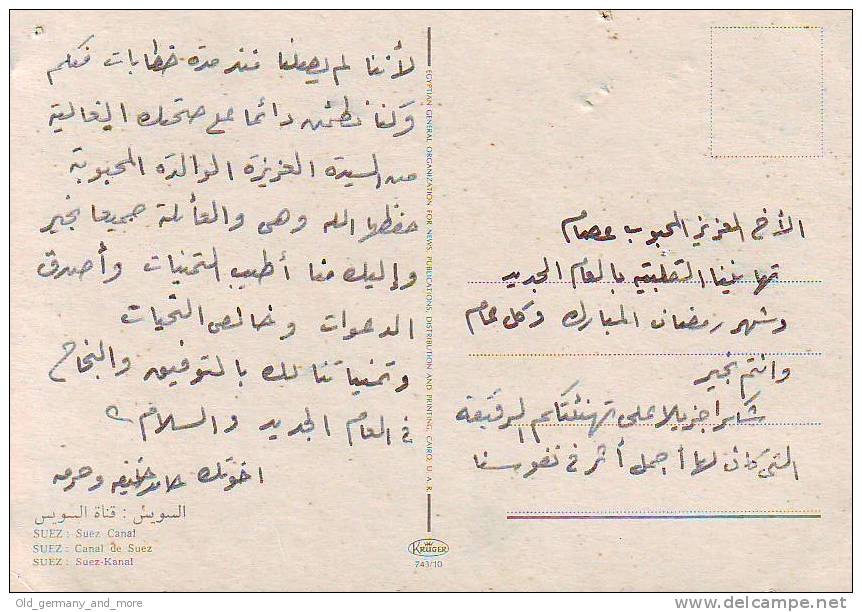 الأخ العزيز المحبوب عصام
تهانينا القلبية بالعام الجديد
وشهر رمضان المبارك وكل عام
وانتم بخير
شاكرا جزيلا على تهنئتكم الرقيقة
التى كان لها أجمل أثر فى نفوسنا
لأننا لم يصلنا منذ مدة خطابات منكم
وكنا نطمئن دائما على صحتك الغالية
من السيدة العزيزة الوالدة المحبوبة
حفظها الله وهى والعائلة جميعا بخير
وإليك منا أطيب التمنيات وأصدق
الدعوات وخالص التحيات
وتمنياتنا لك بالتوفيق والنجاح
فى العام الجديد والسلام
اخوتك حامد خليفه وحرمه
السويس : قناة السويس
SUEZ : Suez Canal
SUEZ : Canal de Suez
SUEZ : Suez-Kanal
EGYPTIAN GENERAL ORGANIZATION FOR NEWS, PUBLICATIONS, DISTRIBUTION AND PRINTING, CAIRO, U. A. R.
KRUGER
743/10
Old_germany_and_more
delcampe.net